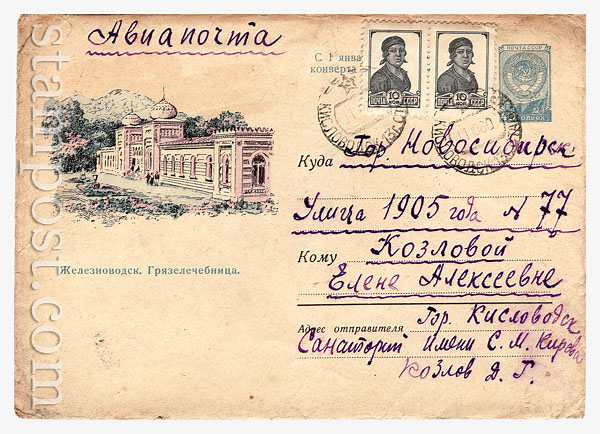 Авиапочта
С 1 янва
конверта
ПОЧТА 10 КОП. СССР
ПОЧТА 10 КОП. СССР
ПОЧТА СССР
КИСЛОВОДСК
КИСЛОВОДСК
Куда Гор. Новосибирск
Улица 1905 года N 77
Кому Козловой
Елене Алексеевне
Железноводск. Грязелечебница.
Адрес отправителя Гор. Кисловодск
Санаторий имени С. М. Кирова
Козлов Д. Г.
stampost.com